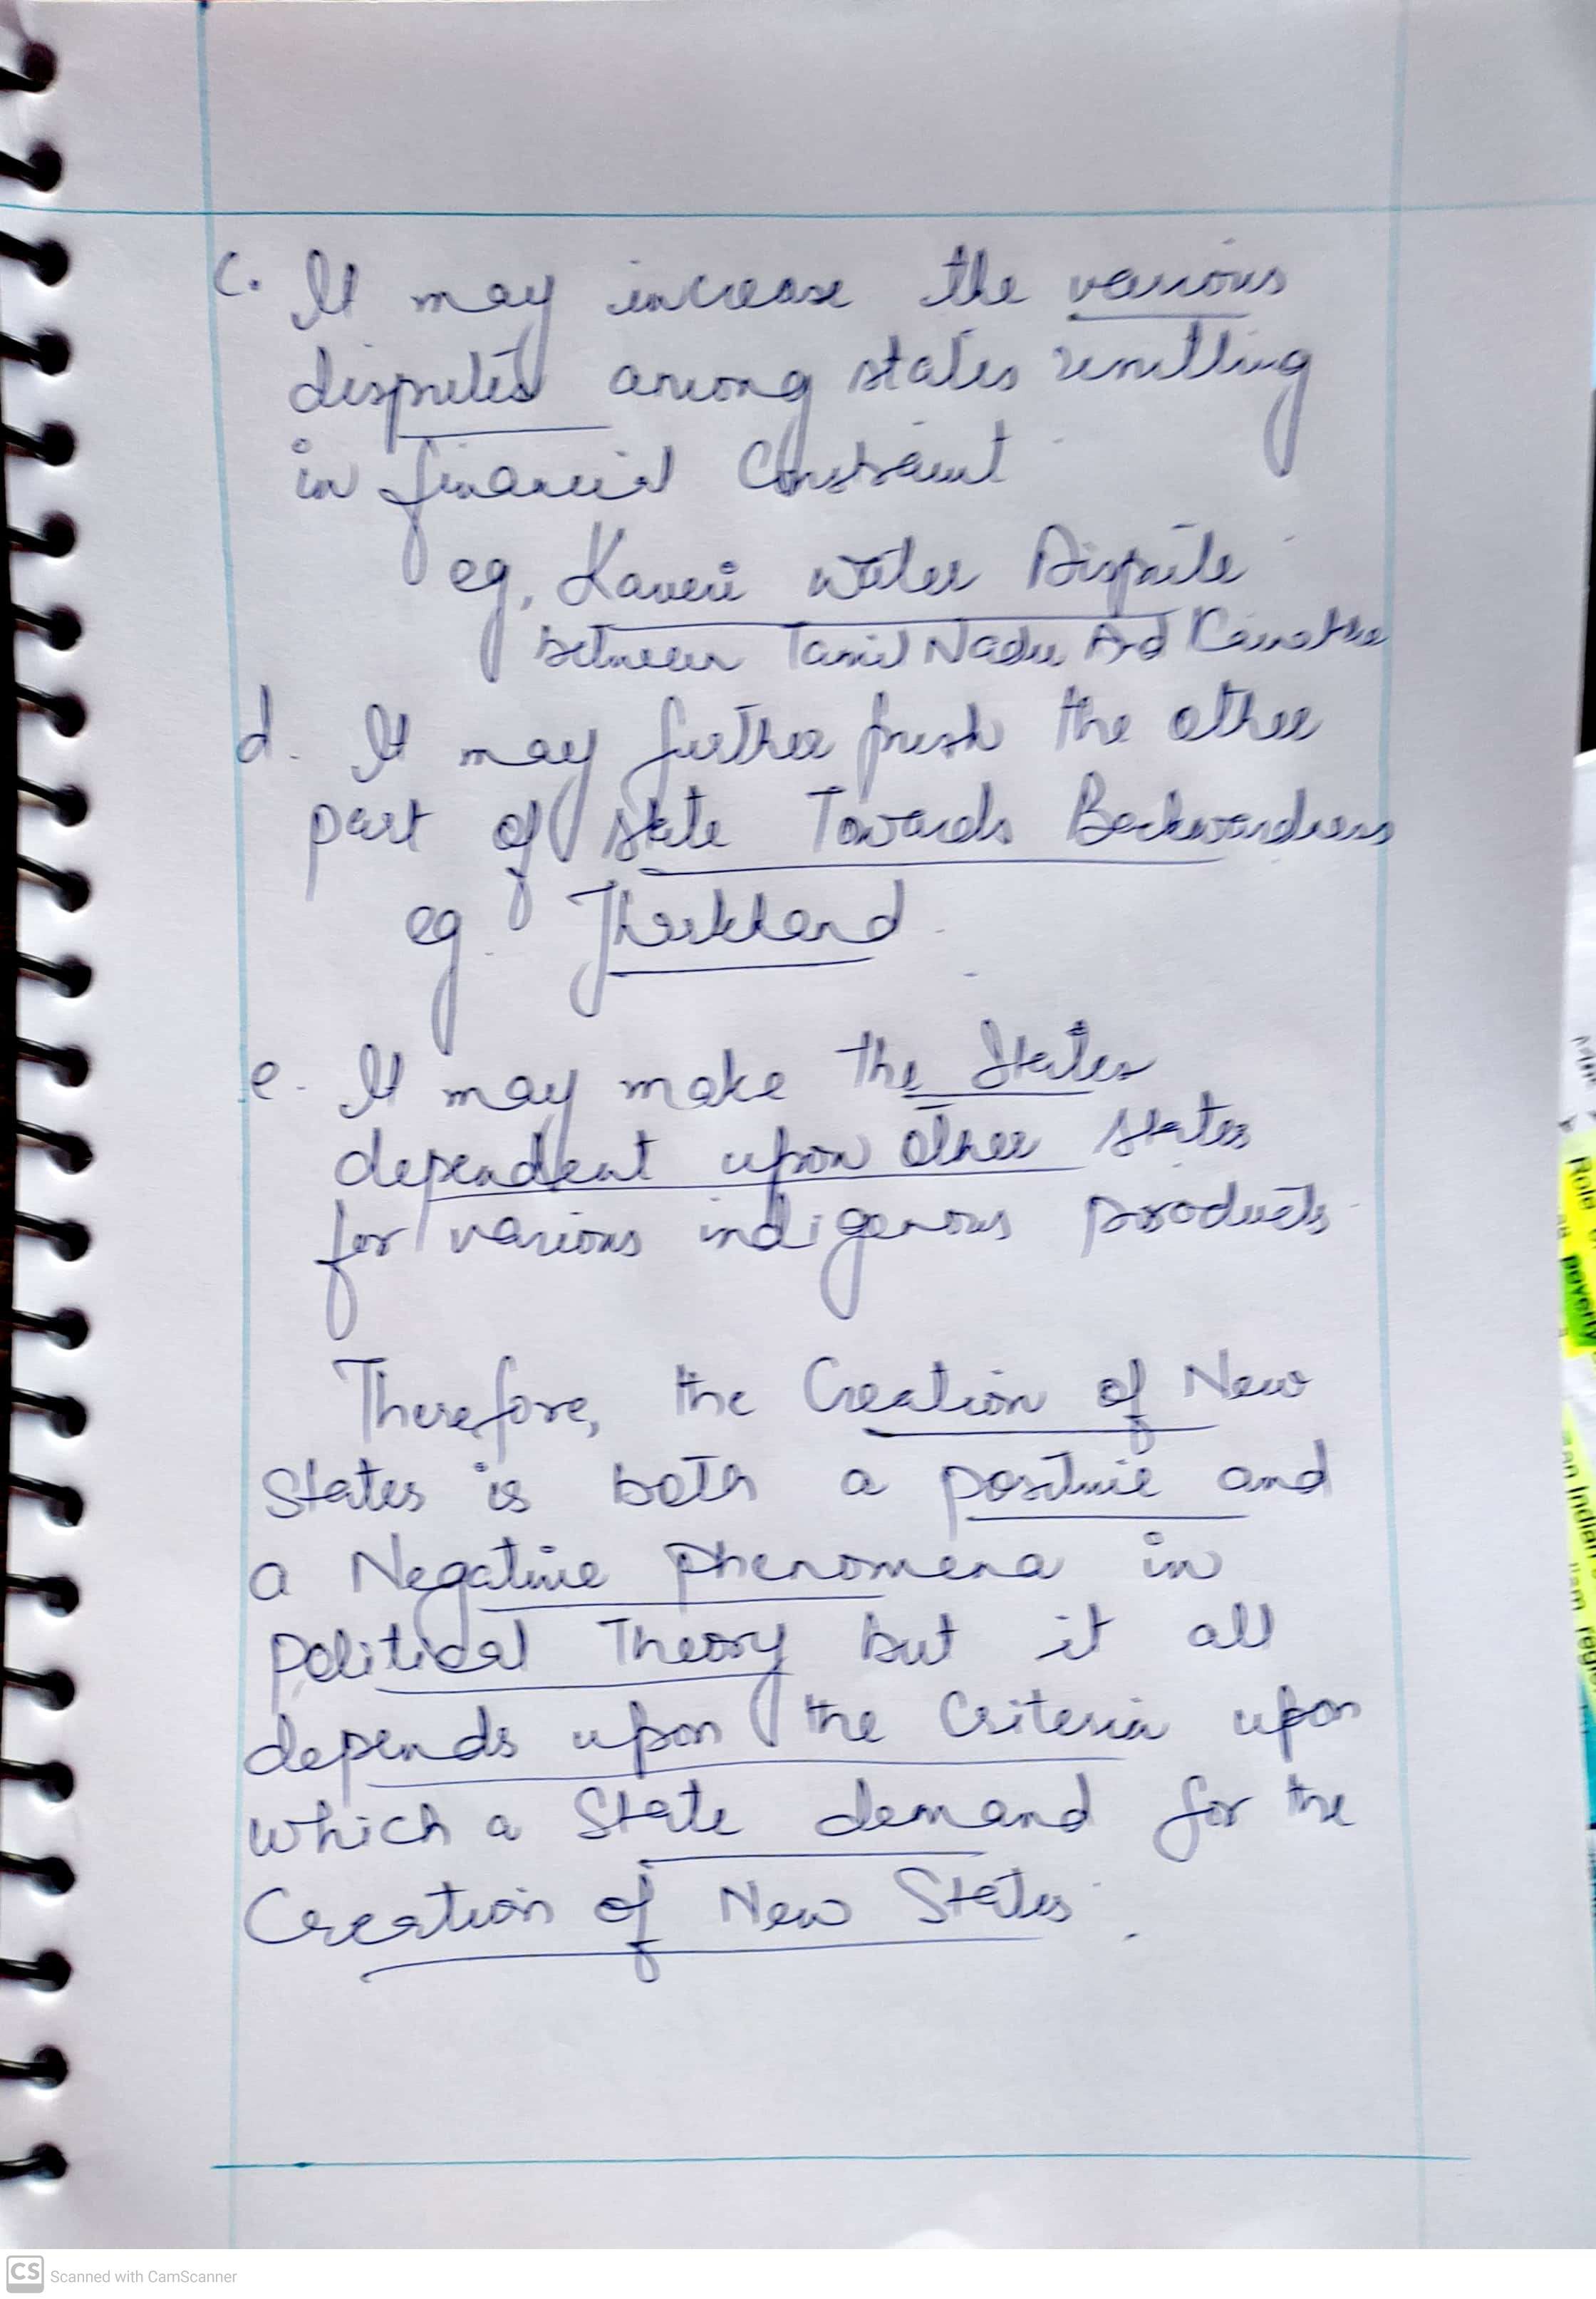 c. It may increase the various
disputes among states resulting
in financial Constraint
eg, Kaveri Water Dispute
between Tamil Nadu And
d. It may further push the other
part of state Towards Backwardness
eg. Jharkhand.
e. It may make the States
dependent upon other states
for various indigenous products
Therefore, the Creation of New
States is both a positive and
a Negative phenomena in
Political Theory but it all
depends upon the Criteria upon
which a State demand for the
Creation of New States.
CS Scanned with CamScanner